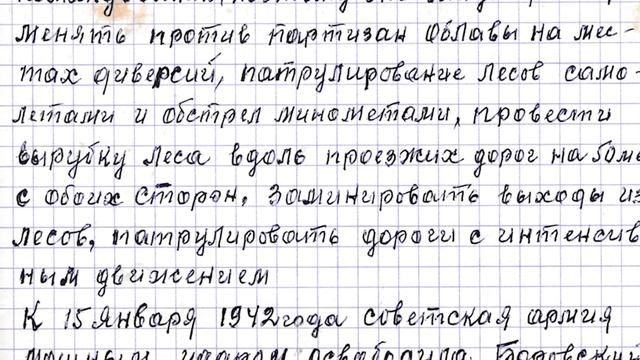 менять против партизан облавы на мес-
тах диверсий, патрулирование лесов само-
летами и обстрел минометами, провести
вырубку леса вдоль проезжих дорог на 50м
с обоих сторон, заминировать выходы из
лесов, патрулировать дороги с интенсив
ным движением
К 15 января 1942 года советская армия
освободила Боровский